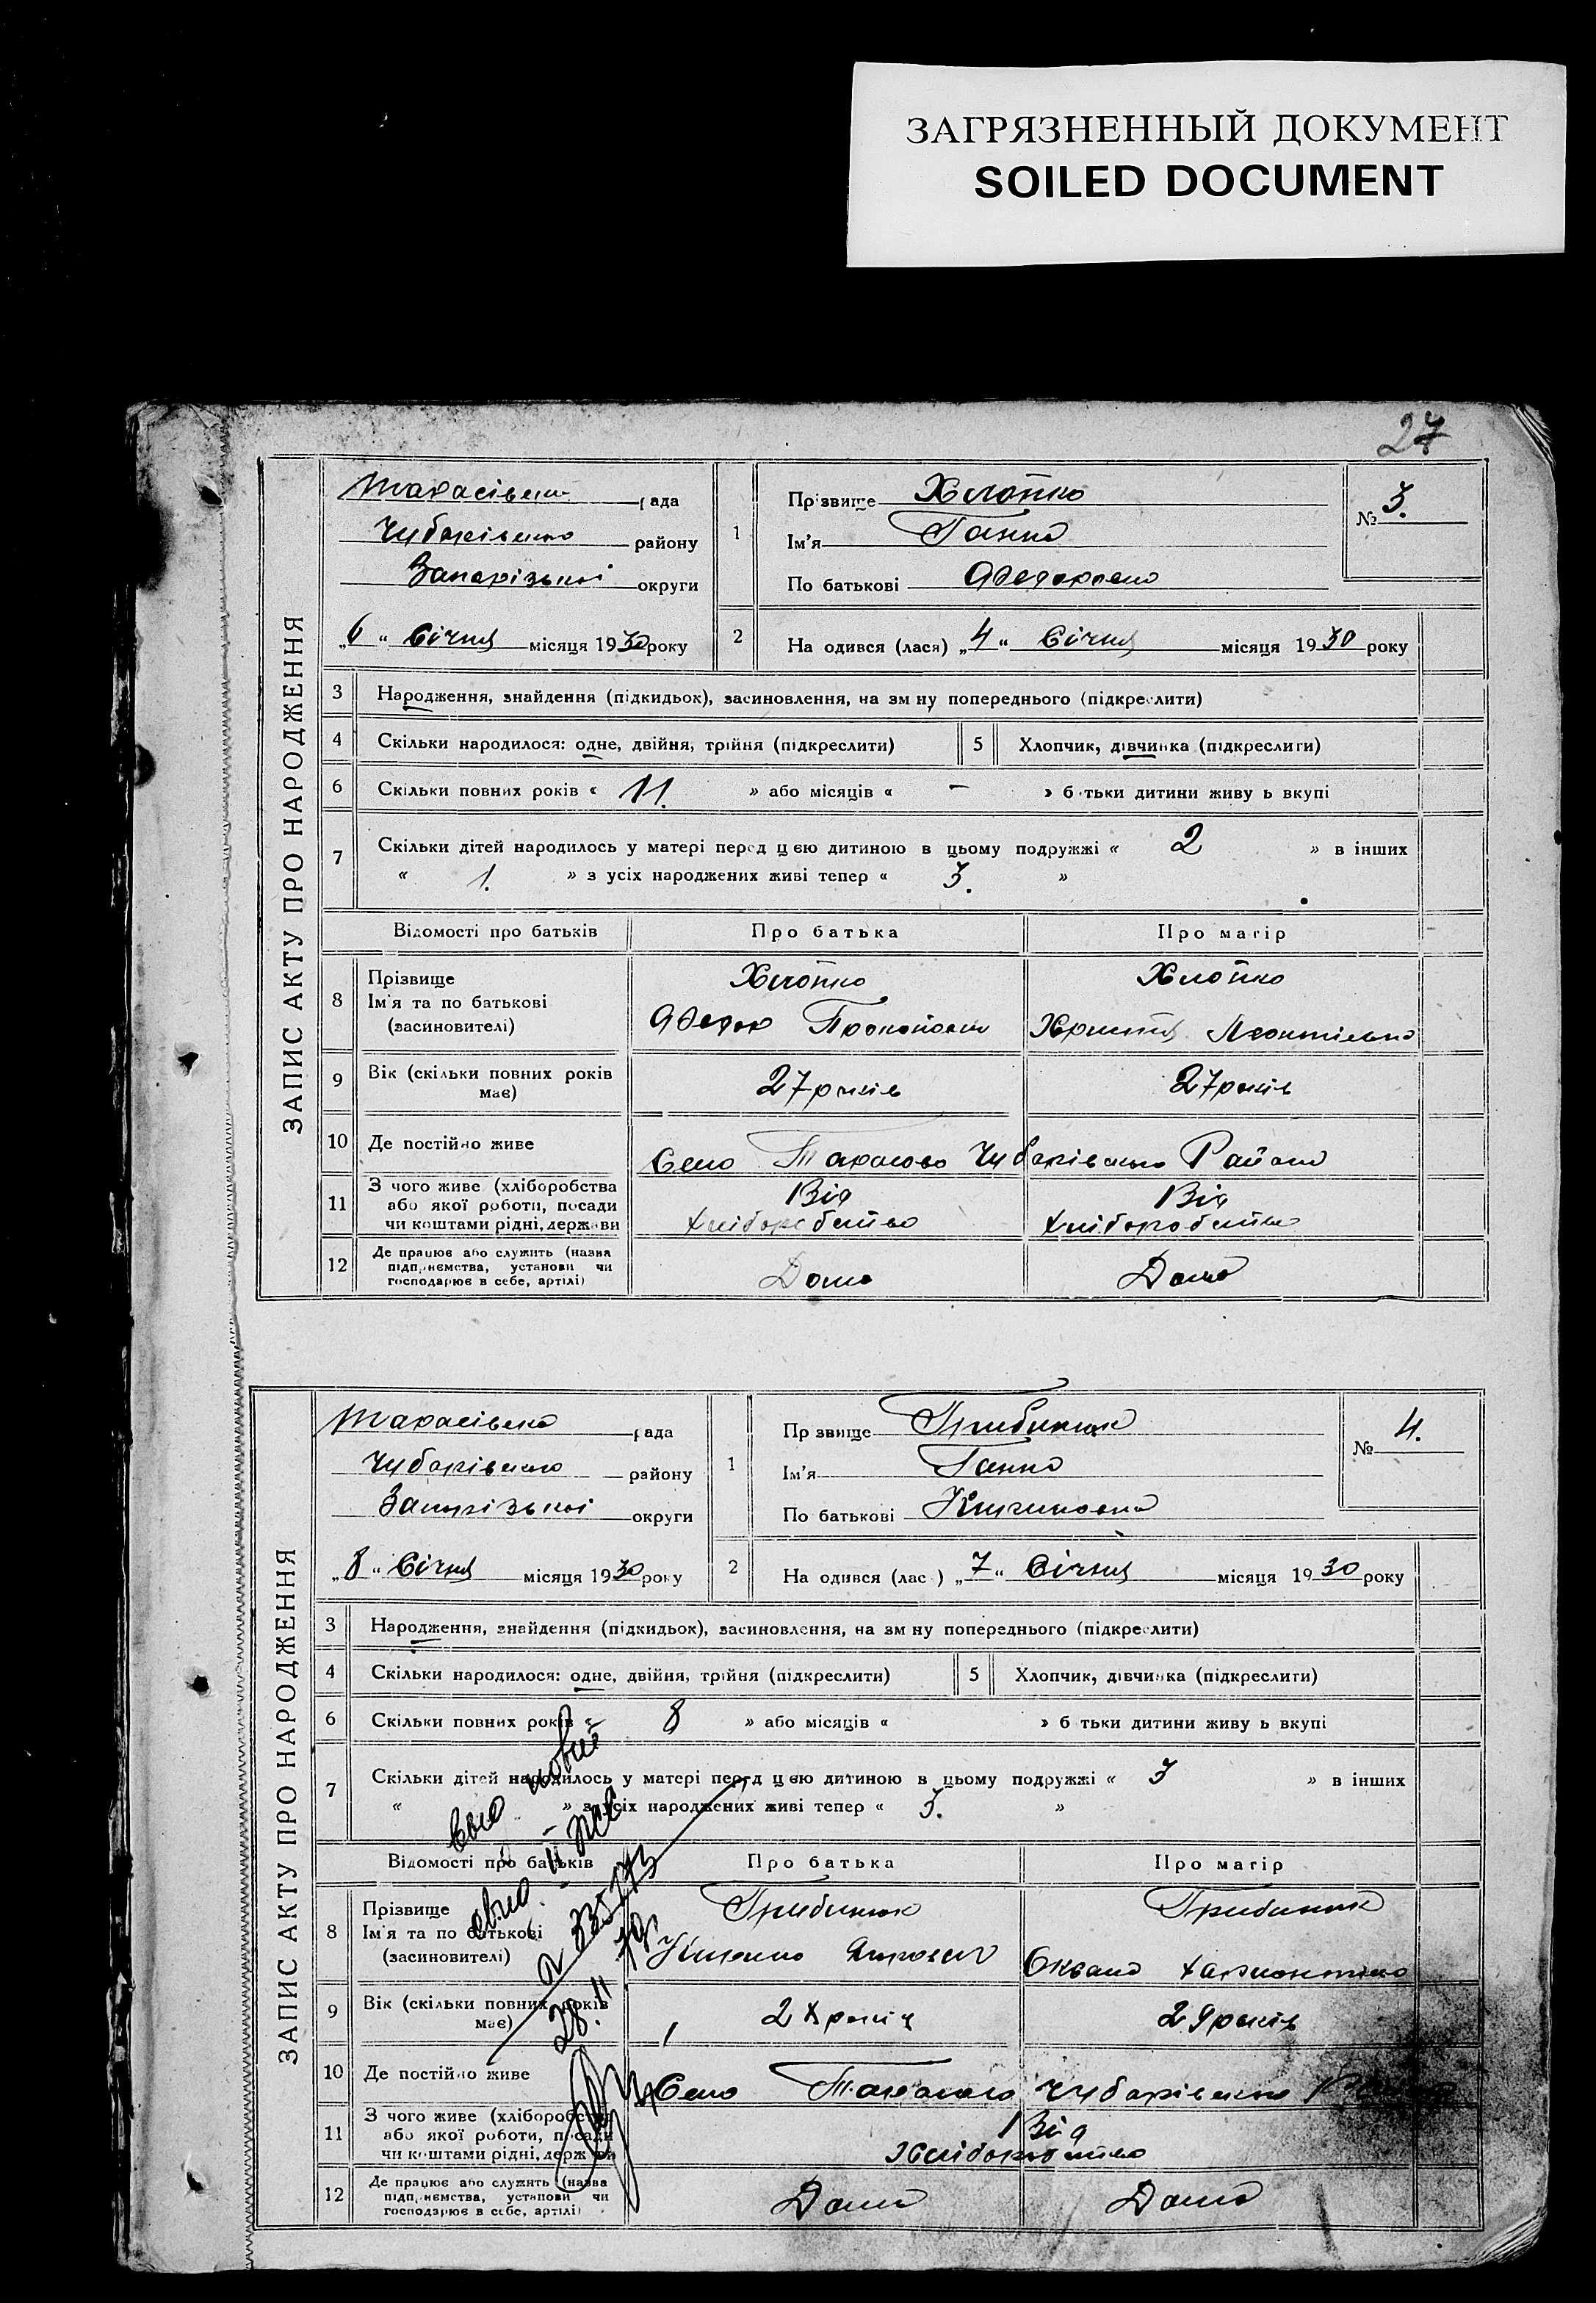 ЗАГРЯЗНЕННЫЙ ДОКУМЕНТ
SOILED DOCUMENT
27
ЗАПИС АКТУ ПРО НАРОДЖЕННЯ
Тарасівська рада
Чубарівського району
Запорізької округи
„6“ Січня місяця 1930 року
1
Прізвище Хлопко
Ім'я Ганна
По батькові Федоровна
№ 3.
2
На одився (лася) „4“ Січня місяця 1930 року
3 Народження, знайдення (підкидьок), засиновлення, на зм ну попереднього (підкреслити)
4 Скільки народилося: одне, двійня, трійня (підкреслити) 5 Хлопчик, дівчинка (підкреслити)
6 Скільки повних років « 11. » або місяців « – » б тьки дитини живу ь вкупі
7 Скільки дітей народилось у матері перед цією дитиною в цьому подружжі « 2 » в інших
« 1. » з усіх народжених живі тепер « 3. »
Відомості про батьків Про батька Про матір
8 Прізвище Хлопко Хлопко
Ім'я та по батькові Федор Прокопович Христя Леонтіевна
(засиновителі)
9 Вік (скільки повних років має) 27 років 27 років
10 Де постійно живе Село Тарасово Чубарівського Району
11 З чого живе (хліборобства Від Від
або якої роботи, посади хліборобства хліборобства
чи коштами рідні, держави
12 Де працює або служить (назва
підприємства, установи чи Дома Дома
господарює в себе, артілі)
ЗАПИС АКТУ ПРО НАРОДЖЕННЯ
Тарасівська рада
Чубарівського району
Запорізької округи
„8“ Січня місяця 1930 року
1
Пр звище Грибинюк
Ім'я Ганна
По батькові
№ 4.
2
На одився (лас ) „7“ Січня місяця 1930 року
3 Народження, знайдення (підкидьок), засиновлення, на зм ну попереднього (підкреслити)
4 Скільки народилося: одне, двійня, трійня (підкреслити) 5 Хлопчик, дівчинка (підкреслити)
6 Скільки повних років « 8 » або місяців « » б тьки дитини живу ь вкупі
7 Скільки дітей народилось у матері перед цією дитиною в цьому подружжі « 3 » в інших
« » з усіх народжених живі тепер « 3. »
Відомості про батьків Про батька Про матір
8 Прізвище Грибинюк Грибинюк
Ім'я та по батькові Оксана
(засиновителі)
9 Вік (скільки повних років має) років 29 років
10 Де постійно живе Село Тарасово Чубарівського
11 З чого живе (хліборобства Від
або якої роботи, посади Хліборобства
чи коштами рідні, держави
12 Де працює або служить (назва
підприємства, установи чи Дома Дома
господарює в себе, артілі)